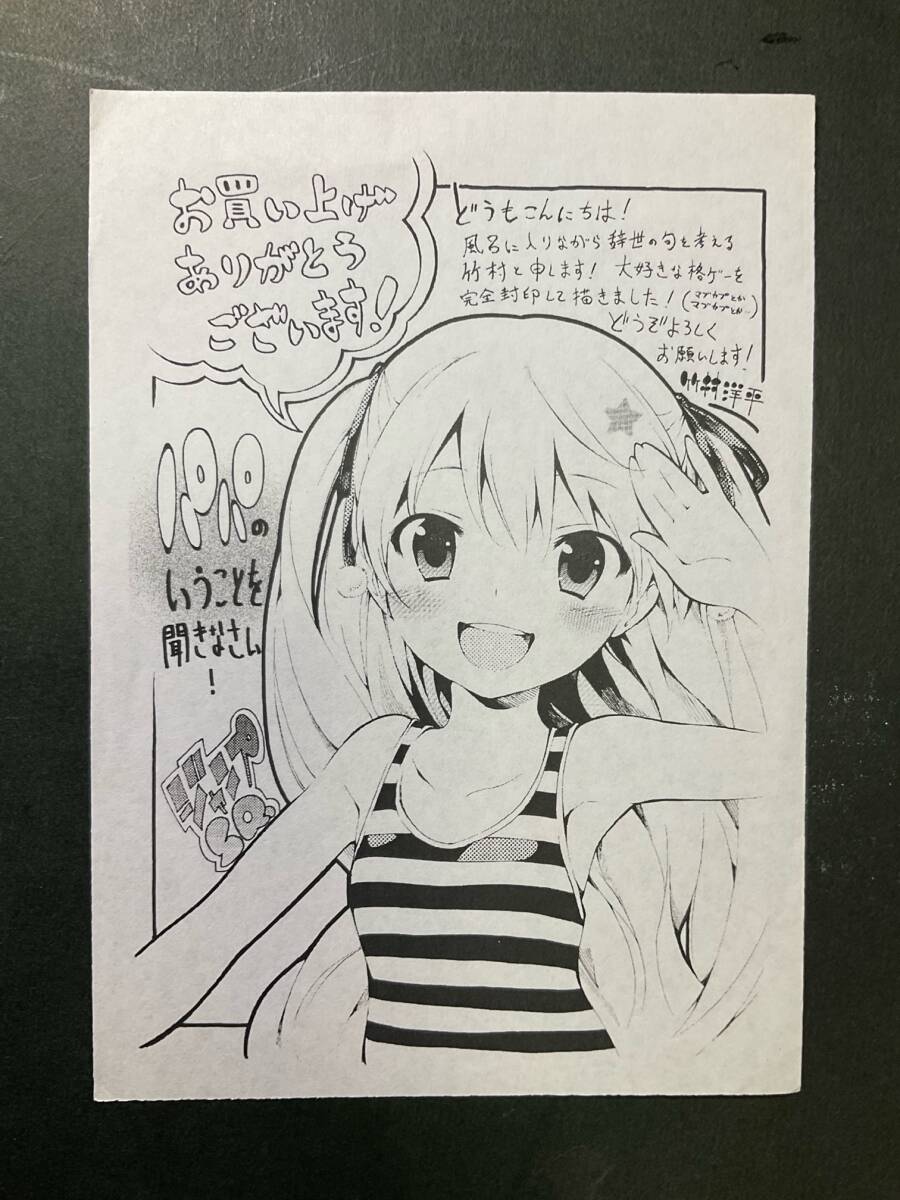 お買い上げ
ありがとう
ございます!
どうもこんにちは!
風呂に入りながら辞世の句を考える
竹村と申します! 大好きな格ゲーを
完全封印して描きました!(マブカプとかマブカプとか…)
どうぞよろしく
お願いします!
竹村洋平
パパの
いうことを
聞きなさい
!